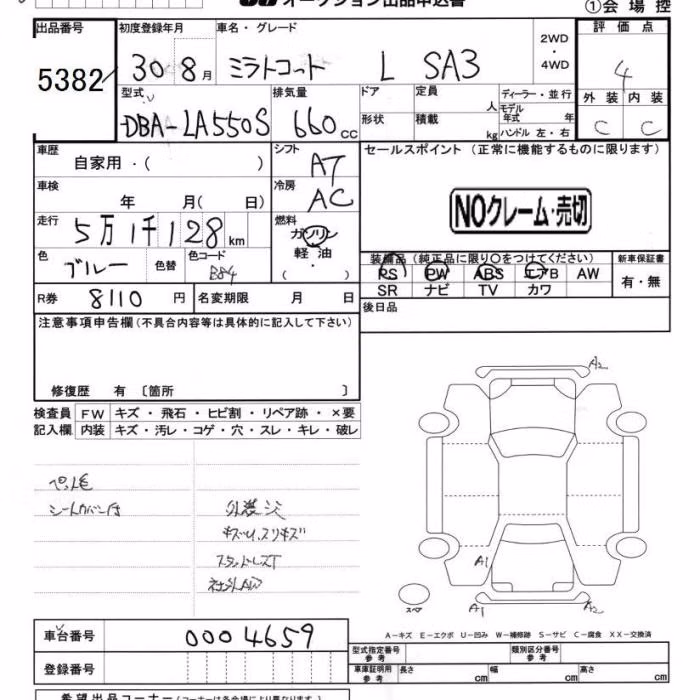 オークション出品申込書
①会場控
出品番号 初度登録年月 車名・グレード 2WD・4WD 評価点
5382 30 8月 ミラトコット L SA3 4
型式 排気量 ドア 定員 人 ディーラー・並行 外装 内装
DBA-LA550S 660cc 形状 積載 kg モデル年式 年 ハンドル 左・右 C C
車歴 シフト セールスポイント (正常に機能するものに限ります)
自家用・( ) AT
車検 年 月(日) 冷房 AC
NOクレーム・売切
走行 5万1千128km 燃料 ガソリン・軽油
( ・ )
色 ブルー 色替 色コード B84
装備品 (純正品に限り○をつけてください) 新車保証書
PS PW ABS エアB AW 有・無
SR ナビ TV カワ
R券 8110円 名変期限 月 日 後日品
注意事項申告欄(不具合内容等は具体的に記入して下さい)
修復歴 有〔箇所 〕
検査員 FW キズ・飛石・ヒビ割・リペア跡・×要
記入欄 内装 キズ・汚レ・コゲ・穴・スレ・キレ・破レ
A2
ペット毛
シートカバー付 外装シミ
キズU、スリキズ
スタッドレスT
社外AW
A1
スペア
A1 A2
A-キズ E-エクボ U-凹み W-補修跡 S-サビ C-腐食 XX-交換済
車台番号 0004659
型式指定番号 参考 類別区分番号 参考
登録番号 車庫証明用 参考 長さ cm 幅 cm 高さ cm
希望出品コーナー(コーナーは各会場により異なります。)